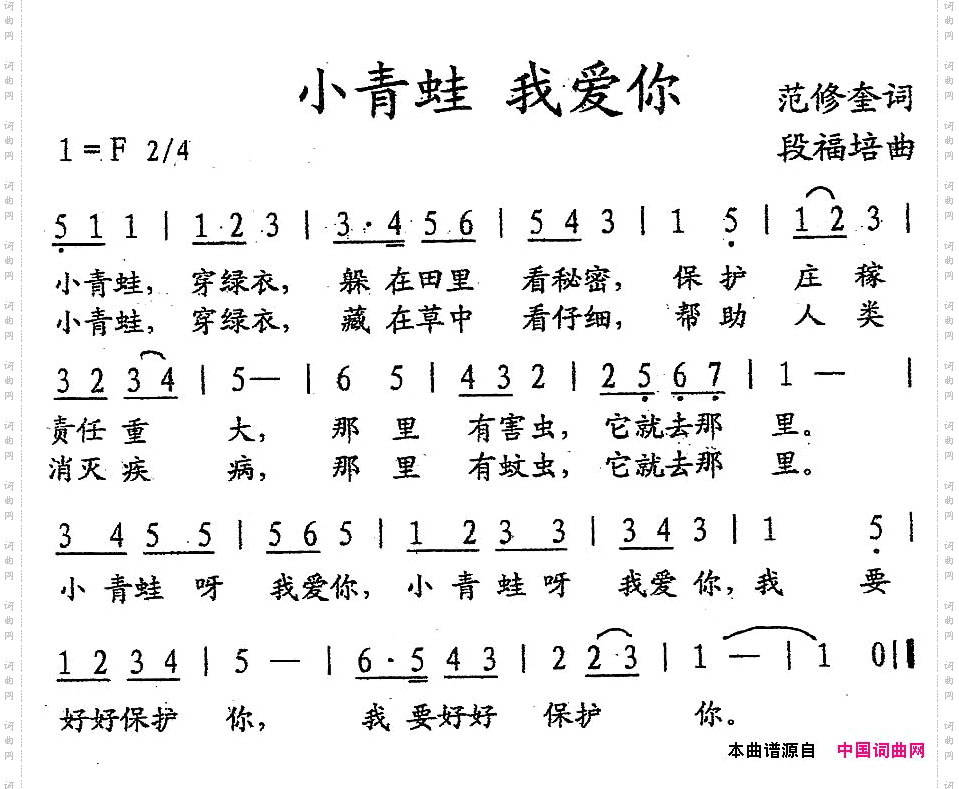 小青蛙 我爱你
范修奎词
1=F 2/4
段福培曲
5 1 1 | 1 2 3 | 3·4 5 6 | 5 4 3 | 1 5 | 1 2 3 |
小青蛙, 穿绿衣, 躲在田里 看秘密, 保护 庄稼
小青蛙, 穿绿衣, 藏在草中 看仔细, 帮助 人类
3 2 3 4 | 5— | 6 5 | 4 3 2 | 2 5 6 7 | 1 — |
责任重 大, 那里 有害虫, 它就去那 里。
消灭疾 病, 那里 有蚊虫, 它就去那 里。
3 4 5 5 | 5 6 5 | 1 2 3 3 | 3 4 3 | 1 5 |
小青蛙呀 我爱你, 小青蛙呀 我爱你, 我 要
1 2 3 4 | 5 — | 6·5 4 3 | 2 2·3 | 1 — | 1 0 ||
好好保护 你, 我要好好 保护 你。
本曲谱源自 中国词曲网
词曲网